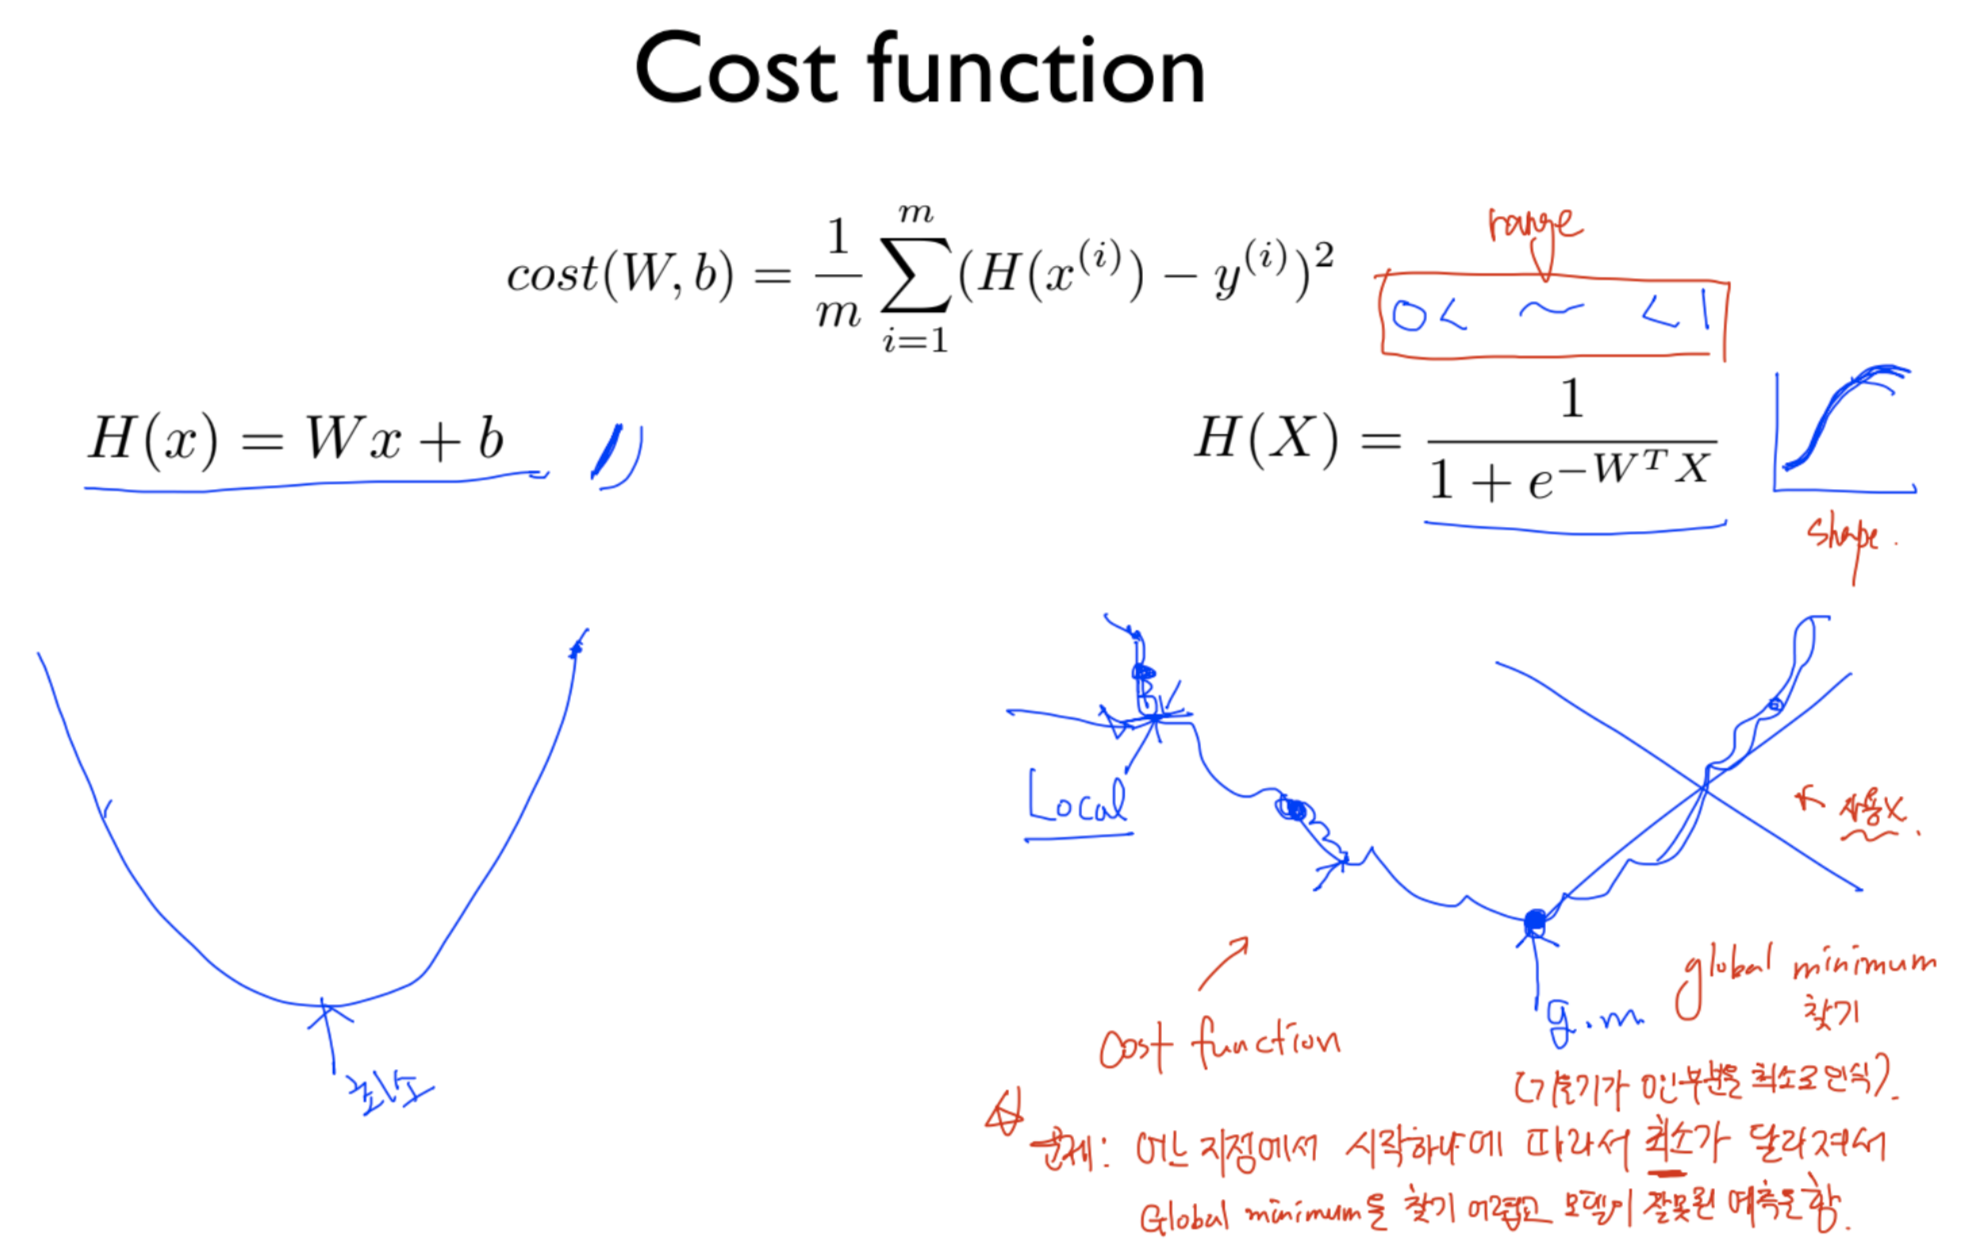 Cost function
cost(W, b) = \frac{1}{m} \sum_{i=1}^{m} (H(x^{(i)}) - y^{(i)})^2
range
0 < ~ < 1
H(x) = Wx + b
H(X) = \frac{1}{1 + e^{-W^T X}}
shape.
Local
사용X.
최소
Cost function
g.m
global minimum
찾기
(기울기가 0인 부분을 최소로 인식).
☆ 문제: 어느 지점에서 시작하냐에 따라서 최소가 달라져서
Global minimum을 찾기 어렵고 모델이 잘못된 예측을 함.